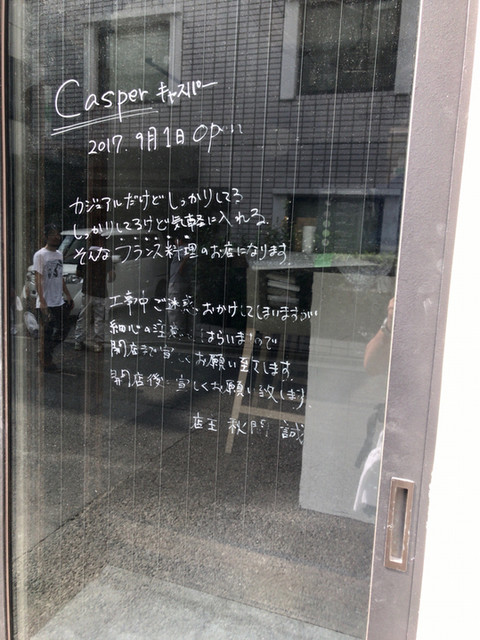 Casper キャスパー
2017. 9月1日 Open
カジュアルだけど しっかりしてる
しっかりしてるけど気軽に入れる
そんな フランス料理のお店になります
工事中ご迷惑おかけしてしまいますが
細心の注意 はらいますので
開店まで宜しくお願い致します。
開店後も宜しくお願い致します。
店主